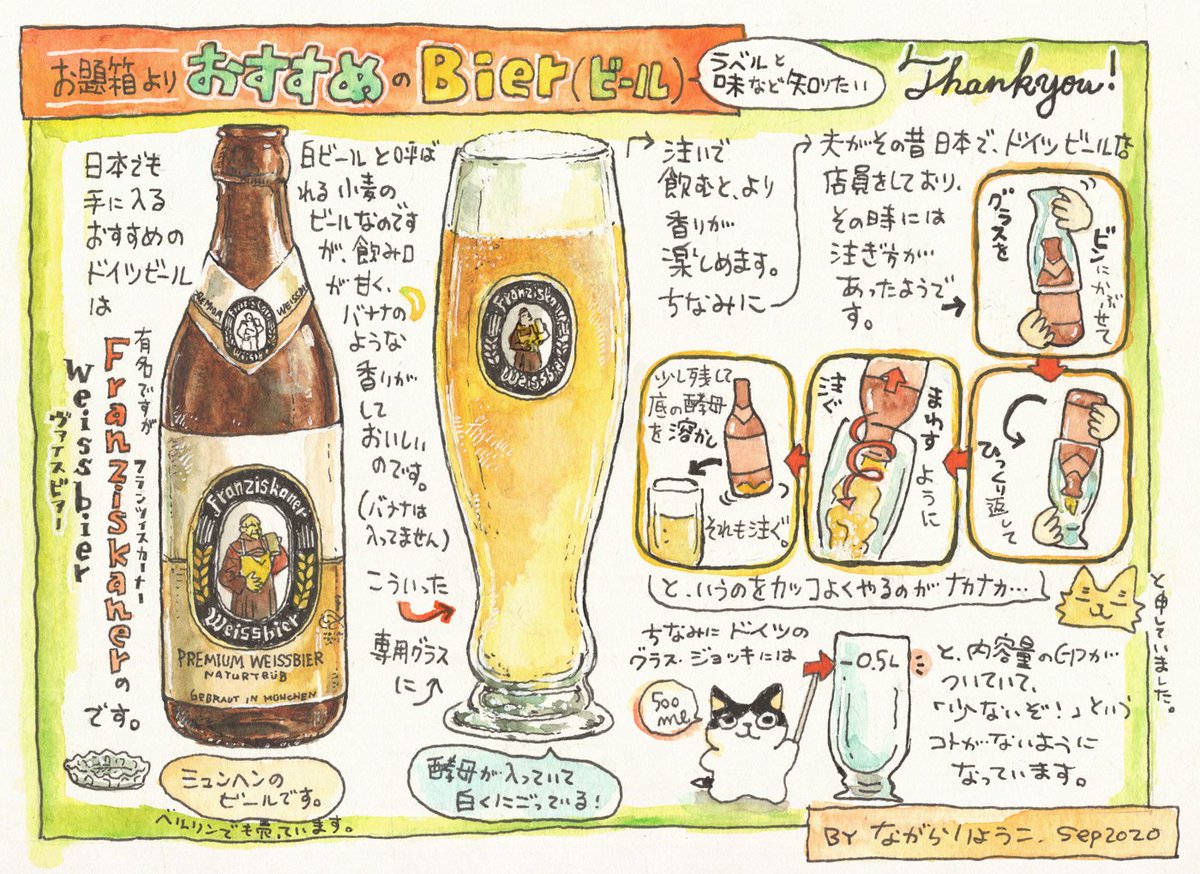 お題箱より おすすめのBier(ビール)
ラベルと
味など知りたい
Thankyou!
日本でも
手に入る
おすすめの
ドイツビール
は
有名ですが
Franziskanerの
フランツィスカーナー
Weissbier
ヴァイスビアー
です。
WEISSBI
Franziskaner
Weissbier
PREMIUM WEISSBIER
NATURTRÜB
GEBRAUT IN MÜNCHEN
ミュンヘンの
ビールです。
ベルリンでも売ています。
白ビールと呼ば
れる小麦の
ビールなのです
が、飲み口
が甘く、
バナナの
ような
香りが
して
おいしい
のです。
(バナナは
入ってません)
こういった
専用グラス
に
Franziskaner
Weissbier
酵母が入っていて
白くにごっている!
注いで
飲むと、より
香りが
楽しめます。
ちなみに
夫がその昔日本で、ドイツビール店
店員をしており、
その時には
注ぎ方が
あったようで
す。
グラスを
ビンにかぶせて
ひっくり返して
まわすように
注ぐ
少し残して
底の酵母
を溶かし
それも注ぐ。
と、いうのをカッコよくやるのがナカナカ…
と申していました。
ちなみにドイツの
グラス・ジョッキには
500
ml
-0.5L
と、内容量の印が
ついていて、
「少ないぞ!」という
コトがないように
なっています。
BY ながらりょうこ. Sep2020